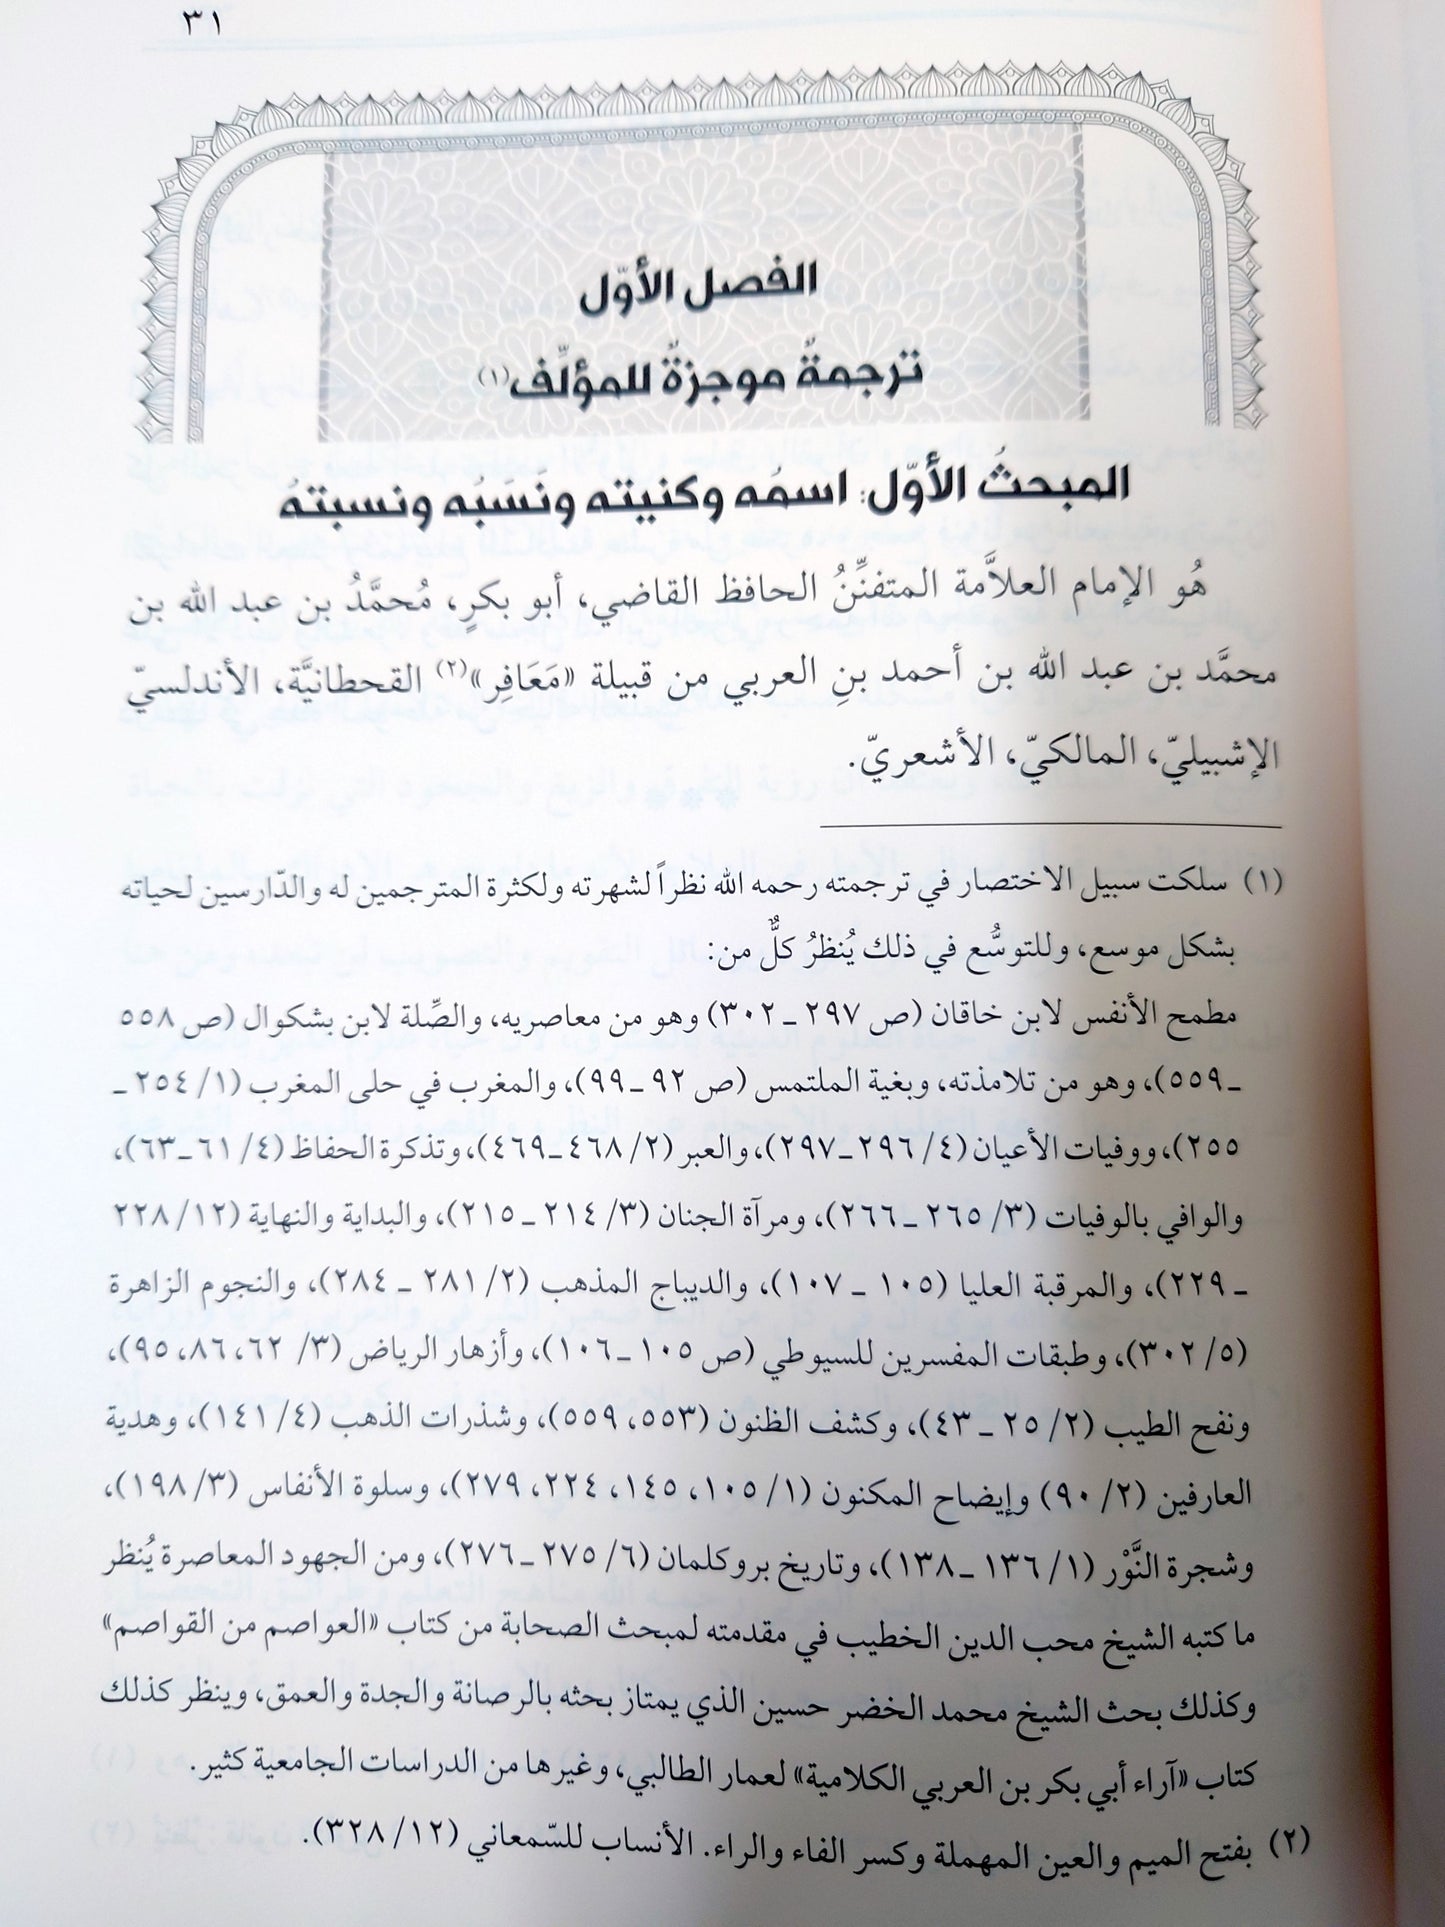 ٣١
الفصل الأوّل
ترجمةٌ موجزةٌ للمؤلِّف(١)
المبحثُ الأوّل: اسمُه وكنيته ونَسَبُه ونسبتهُ
هُو الإمام العلاَّمة المتفنِّنُ الحافظ القاضي، أبو بكرٍ، مُحمَّدُ بن عبد الله بن
محمَّد بن عبد الله بن أحمد بنِ العربي من قبيلة «مَعَافِر»(٢) القحطانيَّة، الأندلسيّ
الإشبيليّ، المالكيّ، الأشعريّ.
(١) سلكت سبيل الاختصار في ترجمته رحمه الله نظراً لشهرته ولكثرة المترجمين له والدّارسين لحياته
بشكل موسع، وللتوسُّع في ذلك يُنظرُ كلٌّ من:
مطمح الأنفس لابن خاقان (ص ٢٩٧ ـ ٣٠٢) وهو من معاصريه، والصِّلة لابن بشكوال (ص ٥٥٨
ـ ٥٥٩)، وهو من تلامذته، وبغية الملتمس (ص ٩٢ ـ ٩٩)، والمغرب في حلى المغرب (١/ ٢٥٤ ـ
٢٥٥)، ووفيات الأعيان (٤/ ٢٩٦ ـ ٢٩٧)، والعبر (٢/ ٤٦٨ ـ ٤٦٩)، وتذكرة الحفاظ (٤/ ٦١ ـ ٦٣)،
والوافي بالوفيات (٣/ ٢٦٥ ـ ٢٦٦)، ومرآة الجنان (٣/ ٢١٤ ـ ٢١٥)، والبداية والنهاية (١٢/ ٢٢٨
ـ ٢٢٩)، والمرقبة العليا (١٠٥ ـ ١٠٧)، والديباج المذهب (٢/ ٢٨١ ـ ٢٨٤)، والنجوم الزاهرة
(٥/ ٣٠٢)، وطبقات المفسرين للسيوطي (ص ١٠٥ ـ ١٠٦)، وأزهار الرياض (٣/ ٦٢، ٨٦، ٩٥)،
ونفح الطيب (٢/ ٢٥ ـ ٤٣)، وكشف الظنون (٥٥٣، ٥٥٩)، وشذرات الذهب (٤/ ١٤١)، وهدية
العارفين (٢/ ٩٠) وإيضاح المكنون (١/ ١٠٥، ١٤٥، ٢٢٤، ٢٧٩)، وسلوة الأنفاس (٣/ ١٩٨)،
وشجرة النَّوْر (١/ ١٣٦ ـ ١٣٨)، وتاريخ بروكلمان (٦/ ٢٧٥ ـ ٢٧٦)، ومن الجهود المعاصرة يُنظر
ما كتبه الشيخ محب الدين الخطيب في مقدمته لمبحث الصحابة من كتاب «العواصم من القواصم»
وكذلك بحث الشيخ محمد الخضر حسين الذي يمتاز بحثه بالرصانة والجدة والعمق، وينظر كذلك
كتاب «آراء أبي بكر بن العربي الكلامية» لعمار الطالبي، وغيرها من الدراسات الجامعية كثير.
(٢) بفتح الميم والعين المهملة وكسر الفاء والراء. الأنساب للسّمعاني (١٢/ ٣٢٨).